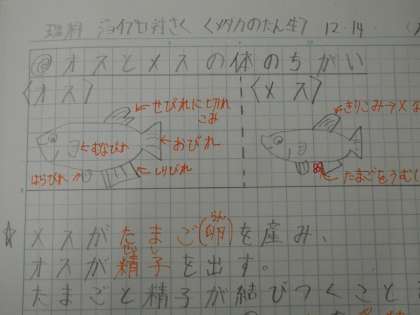 理科 ジョイプロ対さく 〈メダカのたん生〉 12.14
@オスとメスの体のちがい
〈オス〉
せびれに切れこみ
むなびれ
おびれ
はらびれ
しりびれ
〈メス〉
きりこみ→×な
たまごをうむし
☆メスがたまご(卵)を産み、
らん
せいし
オスが精子を出す。
たまごと精子が結びつくこと